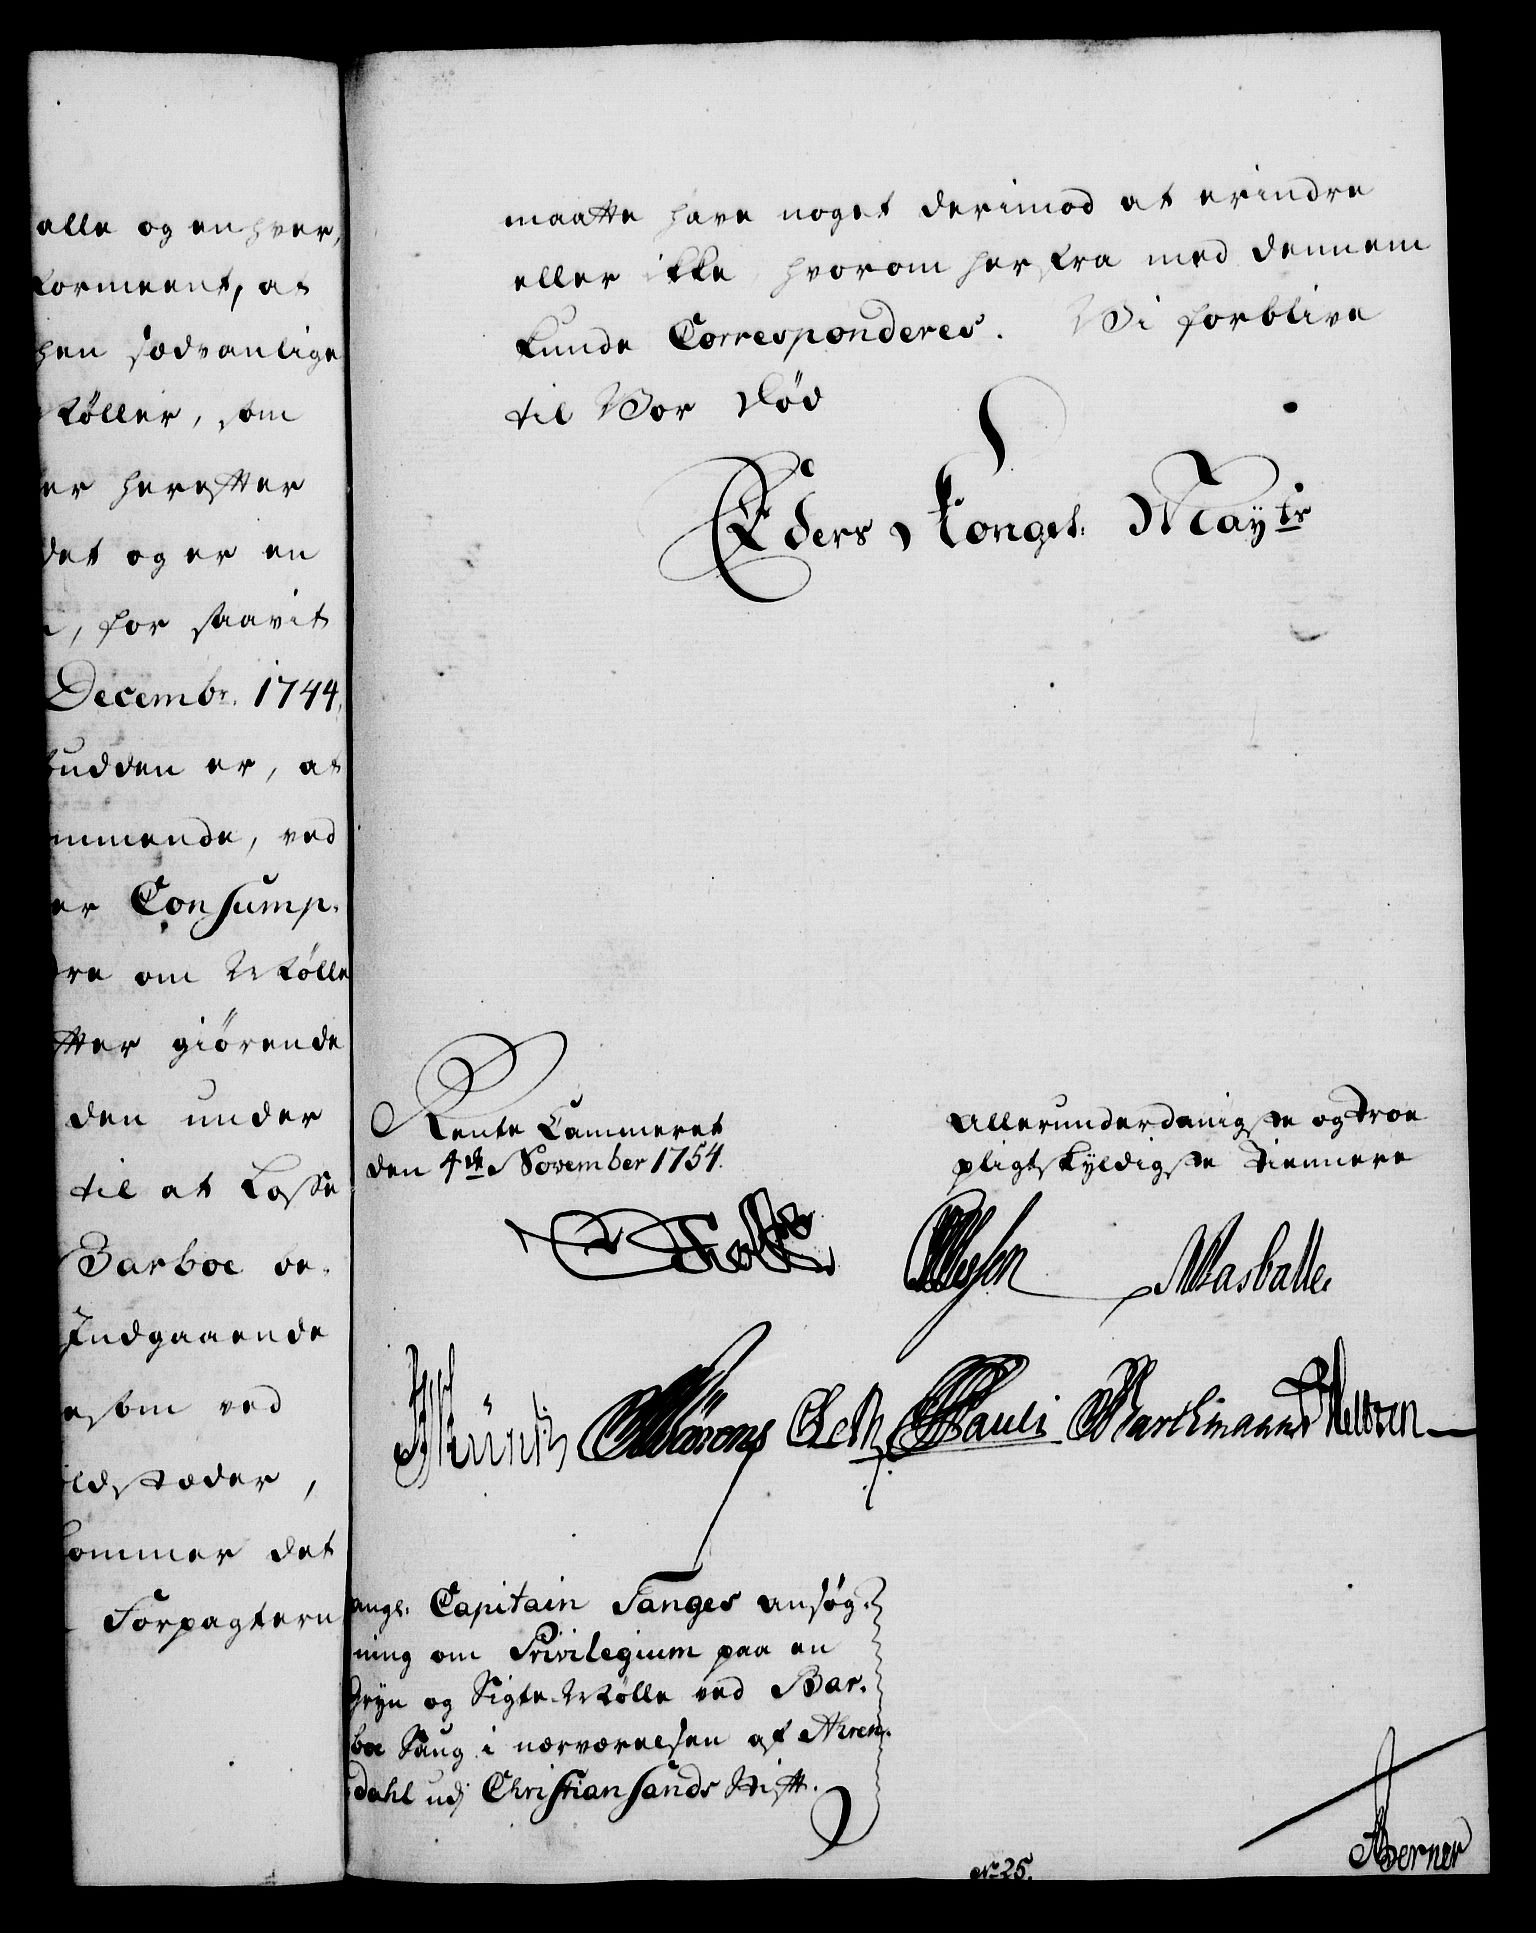 alle og enhver,
formeent, at
hen sædvanlige
Møller, som
er herefter
det og er en
, for saavit
Decembr. 1744,
budden er, at
ommende, ved
er Consump-
dre om Mølle
fter giørende
den under
til at Losse
Barboe be-
Indgaaende
esom ved
ildstæder,
kommer det
Forpagtern
maatte have noget derimod at erindre
eller ikke, hvorom herfra med dennem
kunde Corresponderes. Wi forblive
til Vor Død
Eders Kongel. Mayts
Rente Cammeret
den 4de November 1754.
Allerunderdanigste og troe
pligtskyldigste Tiennere
Holst Masballe.
Pauli Barthmann Neltzen
ange. Capitain Tanges ansøg-
ning om Privilegium paa en
Gryn og Sigte-Mølle ved Bar-
boe Saug i nærværelsen af Ahren-
dahl udj Christiansands Stift.
No 25.
Berner